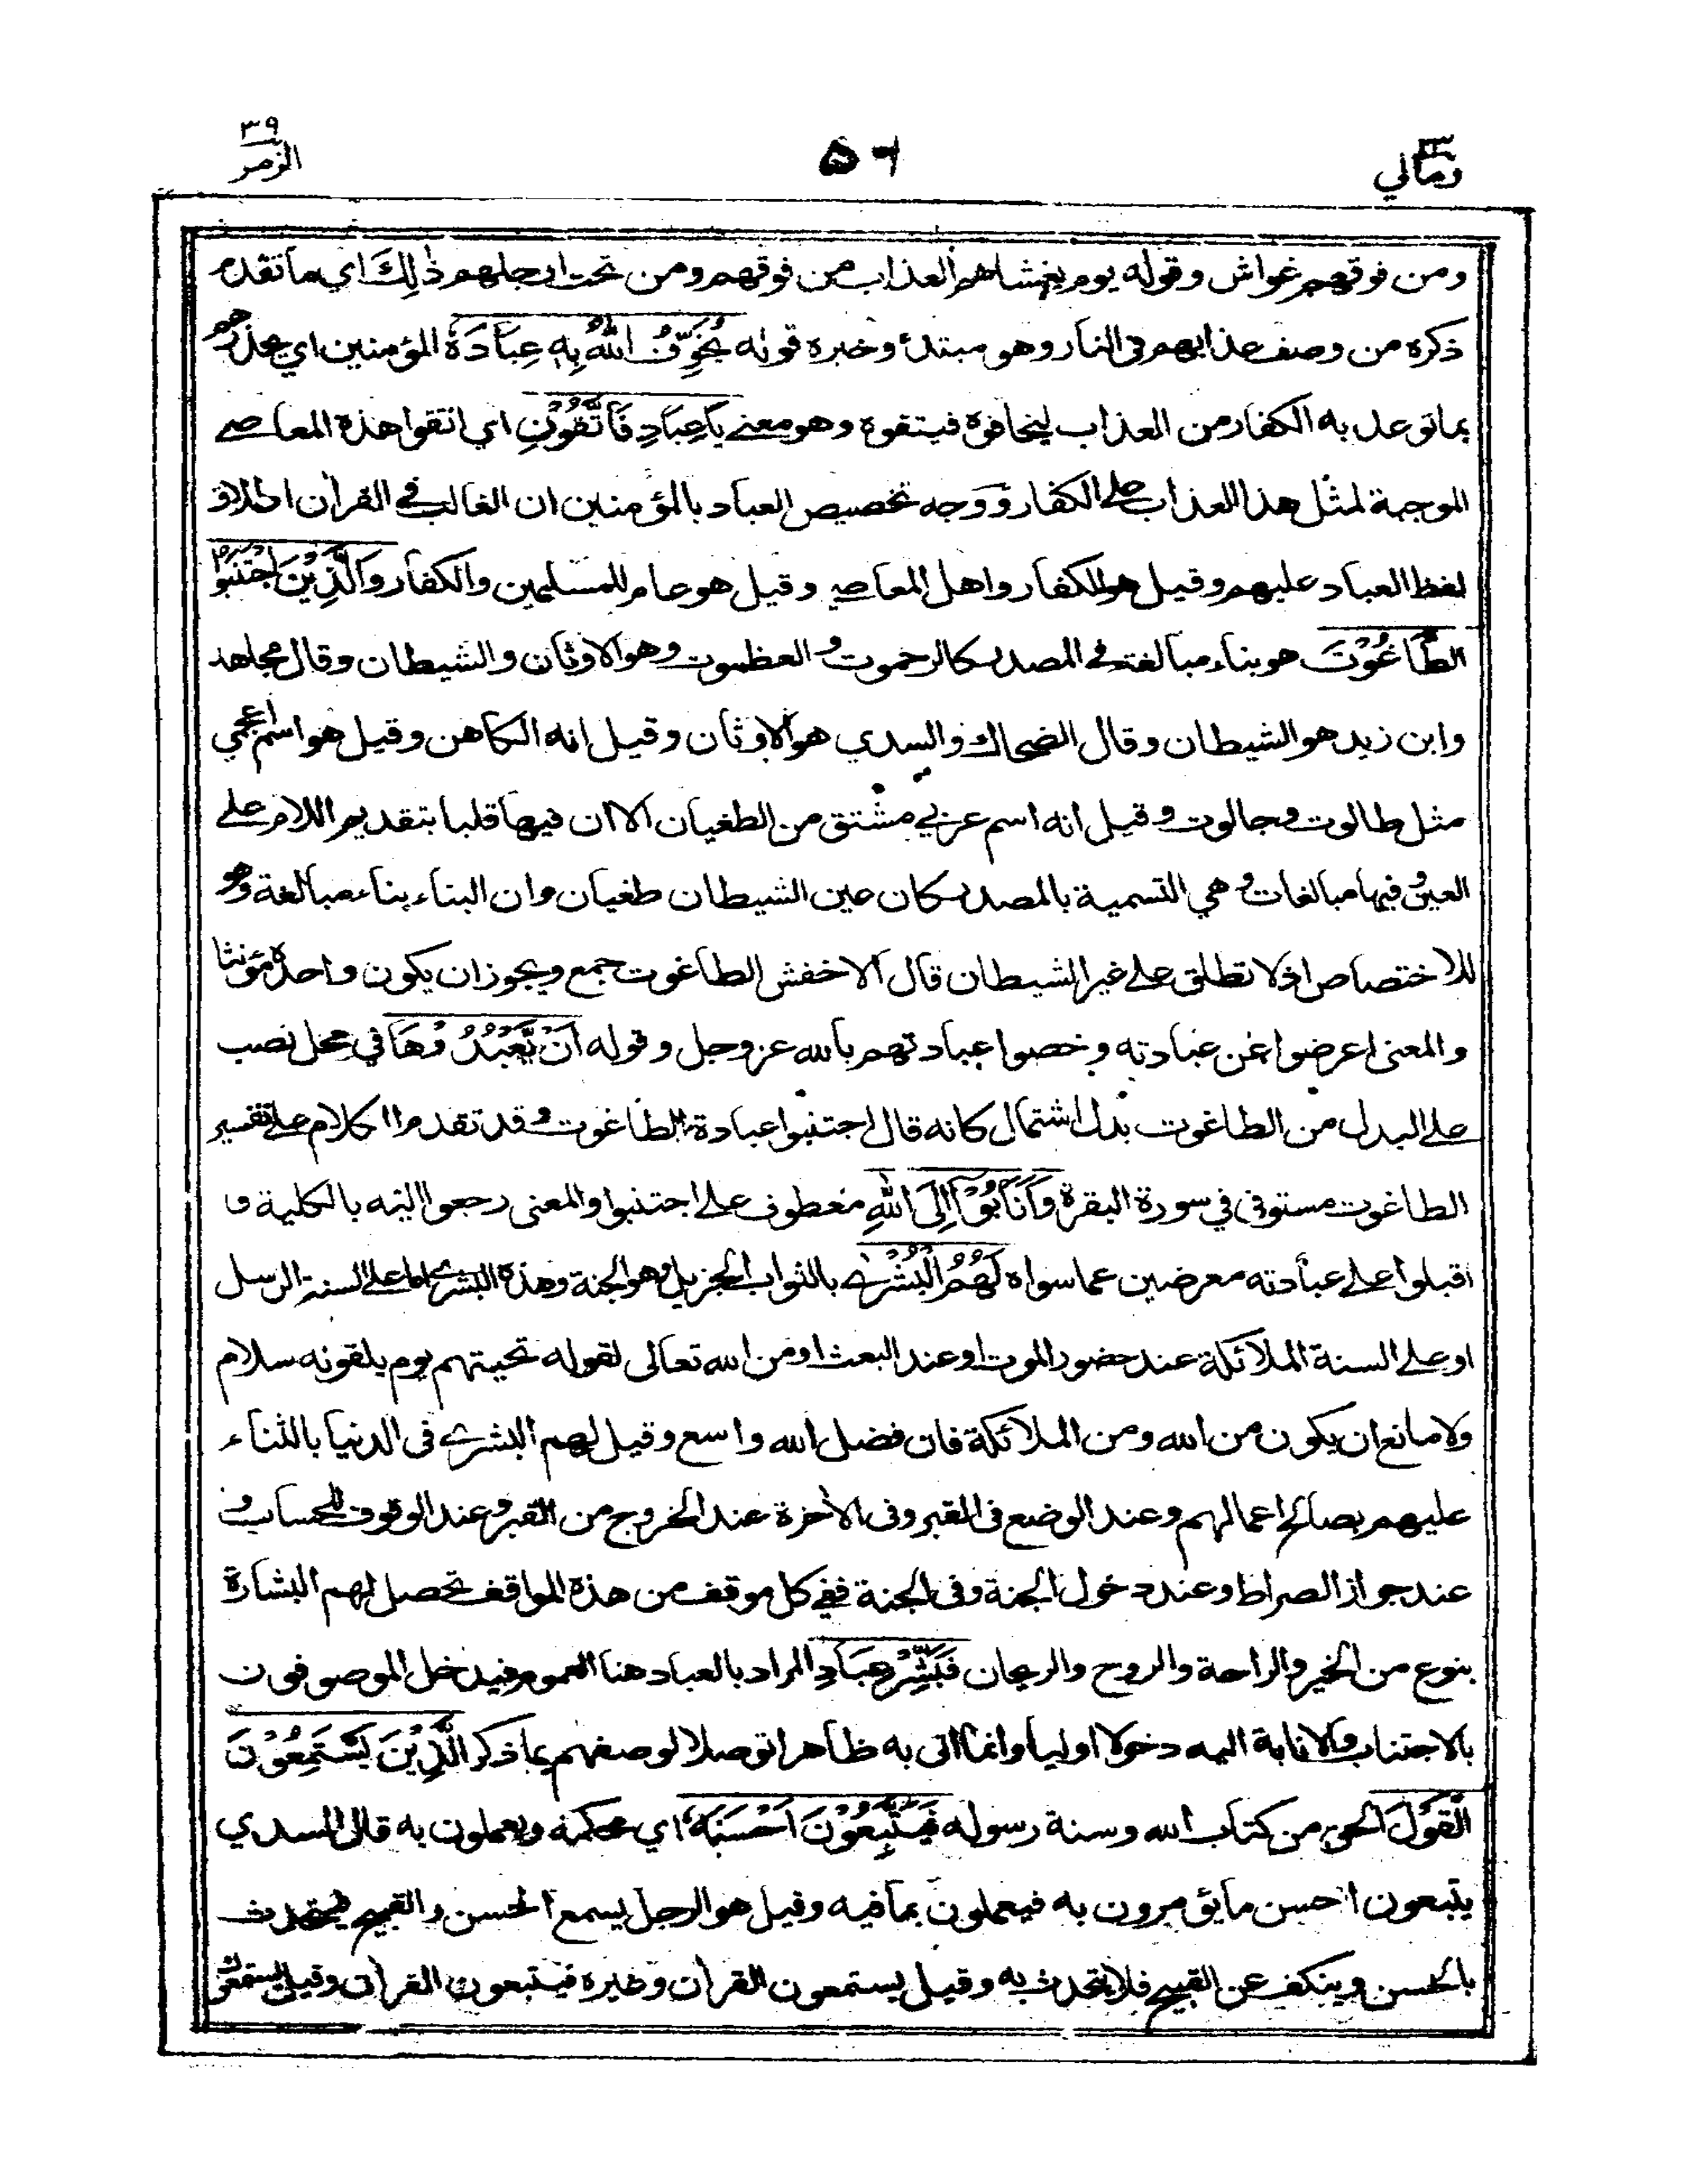 ٢٣
ومالي
٥٦
٣٩
الزمر
ومن فوقهم غواش وقوله يوم يغشاهم العذاب من فوقهم ومن تحت ارجلهم ذٰلِكَ اي ما تقدم
ذكره من وصف عذابهم في النار وهو مبتدأ وخبره قوله يُخَوِّفُ اللّٰهُ بِهٖ عِبَادَهٗ المؤمنين اي يحذرهم
بما توعد به الكفار من العذاب ليخافوه فيتقوه وهو معنى يَا عِبَادِ فَاتَّقُوْنِ اي اتقوا هذه المعاصي
الموجبة لمثل هذا العذاب على الكفار ووجه تخصيص العباد بالمؤمنين ان الغالب في القرآن اطلاق
لفظ العباد عليهم وقيل هو للكفار واهل المعاصي وقيل هو عام للمسلمين والكفار وَالَّذِيْنَ اجْتَنَبُوا
الطَّاغُوْتَ هو بناء مبالغة في المصدر كالرحموت والعظموت وهو الاوثان والشيطان وقال مجاهد
وابن زيد هو الشيطان وقال الضحاك والسدي هو الاوثان وقيل انه الكاهن وقيل هو اسم اعجمي
مثل طالوت وجالوت وقيل انه اسم عربي مشتق من الطغيان الا ان فيها قلبا بتقديم اللام على
العين وفيها مبالغات وهي التسمية بالمصدر كان عين الشيطان طغيان وان البناء بناء مبالغة وهو
للاختصاص اذ لا تطلق على غير الشيطان قال الاخفش الطاغوت جمع ويجوز ان يكون واحده مؤنثا
والمعنى اعرضوا عن عبادته وخصوا عبادتهم بالله عز وجل وقوله اَنْ يَّعْبُدُوْهَا في محل نصب
على البدل من الطاغوت بدل اشتمال كانه قال اجتنبوا عبادة الطاغوت وقد تقدم الكلام على تفسير
الطاغوت مستوفى في سورة البقرة وَاَنَابُوْآ اِلَى اللّٰهِ معطوف على اجتنبوا والمعنى رجعوا اليه بالكلية و
اقبلوا على عبادته معرضين عما سواه لَهُمُ الْبُشْرٰى بالثواب الجزيل وهو الجنة وهذه البشرى اما على السنة الرسل
او على السنة الملائكة عند حضور الموت او عند البعث او من الله تعالى لقوله تحيتهم يوم يلقونه سلام
ولا مانع ان يكون من الله ومن الملائكة فان فضل الله واسع وقيل لهم البشرى في الدنيا بالثناء
عليهم بصالح اعمالهم وعند الوضع في القبر وفي الآخرة عند الخروج من القبر وعند الوقوف للحساب و
عند جواز الصراط وعند دخول الجنة وفي الجنة ففي كل موقف من هذه المواقف تحصل لهم البشارة
بنوع من الخير والراحة والروح والريحان فَبَشِّرْ عِبَادِ المراد بالعباد هنا العموم فيدخل الموصوفون
بالاجتناب والانابة اليه دخولا اوليا وانما اتى به ظاهرا توصلا لوصفهم بما ذكر الَّذِيْنَ يَسْتَمِعُوْنَ
الْقَوْلَ الحق من كتاب الله وسنة رسوله فَيَتَّبِعُوْنَ اَحْسَنَهٗ اي محكمه ويعملون به قال السدي
يتبعون احسن ما يؤمرون به فيعملون بما فيه وقيل هو الرجل يسمع الحسن والقبيح فيتحدث
بالحسن وينكف عن القبيح فلا يتحدث به وقيل يستمعون القرآن وغيره فيتبعون القرآن وقيل يستمعون